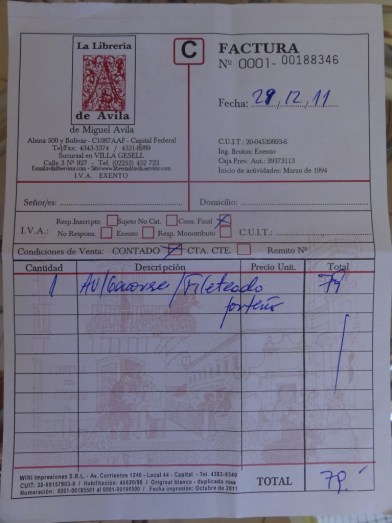 La Librería
A
de Avila
de Miguel Avila
Alsina 500 y Bolívar - C1087AAF - Capital Federal
Tel/Fax: 4343-3374 / 4331-8989
Sucursal en VILLA GESELL
Calle 3 Nº 927 - Tel. (02255) 452 723
I.V.A. EXENTO
C
FACTURA
Nº 0001- 00188346
Fecha: 29/12/11
C.U.I.T.: 20-04539893-6
Ing. Brutos: Exento
Caja Prev. Aut.: 39373113
Inicio de actividades: Marzo de 1994
Señor/es:
Domicilio:
I.V.A.: Resp. Inscripto Sujeto No Cat. Cons. Final
No Respons. Exento Resp. Monotributo C.U.I.T.:
Condiciones de Venta: CONTADO CTA. CTE. Remito Nº
Cantidad Descripción Precio Unit. Total
1 Fileteado 79
porteño
Willi Impresiones S.R.L. - Av. Corrientes 1246 - Local 44 - Capital - Tel. 4383-9340
Original blanco - duplicado rosa
Fecha impresión: Octubre de 2011
TOTAL 79.-